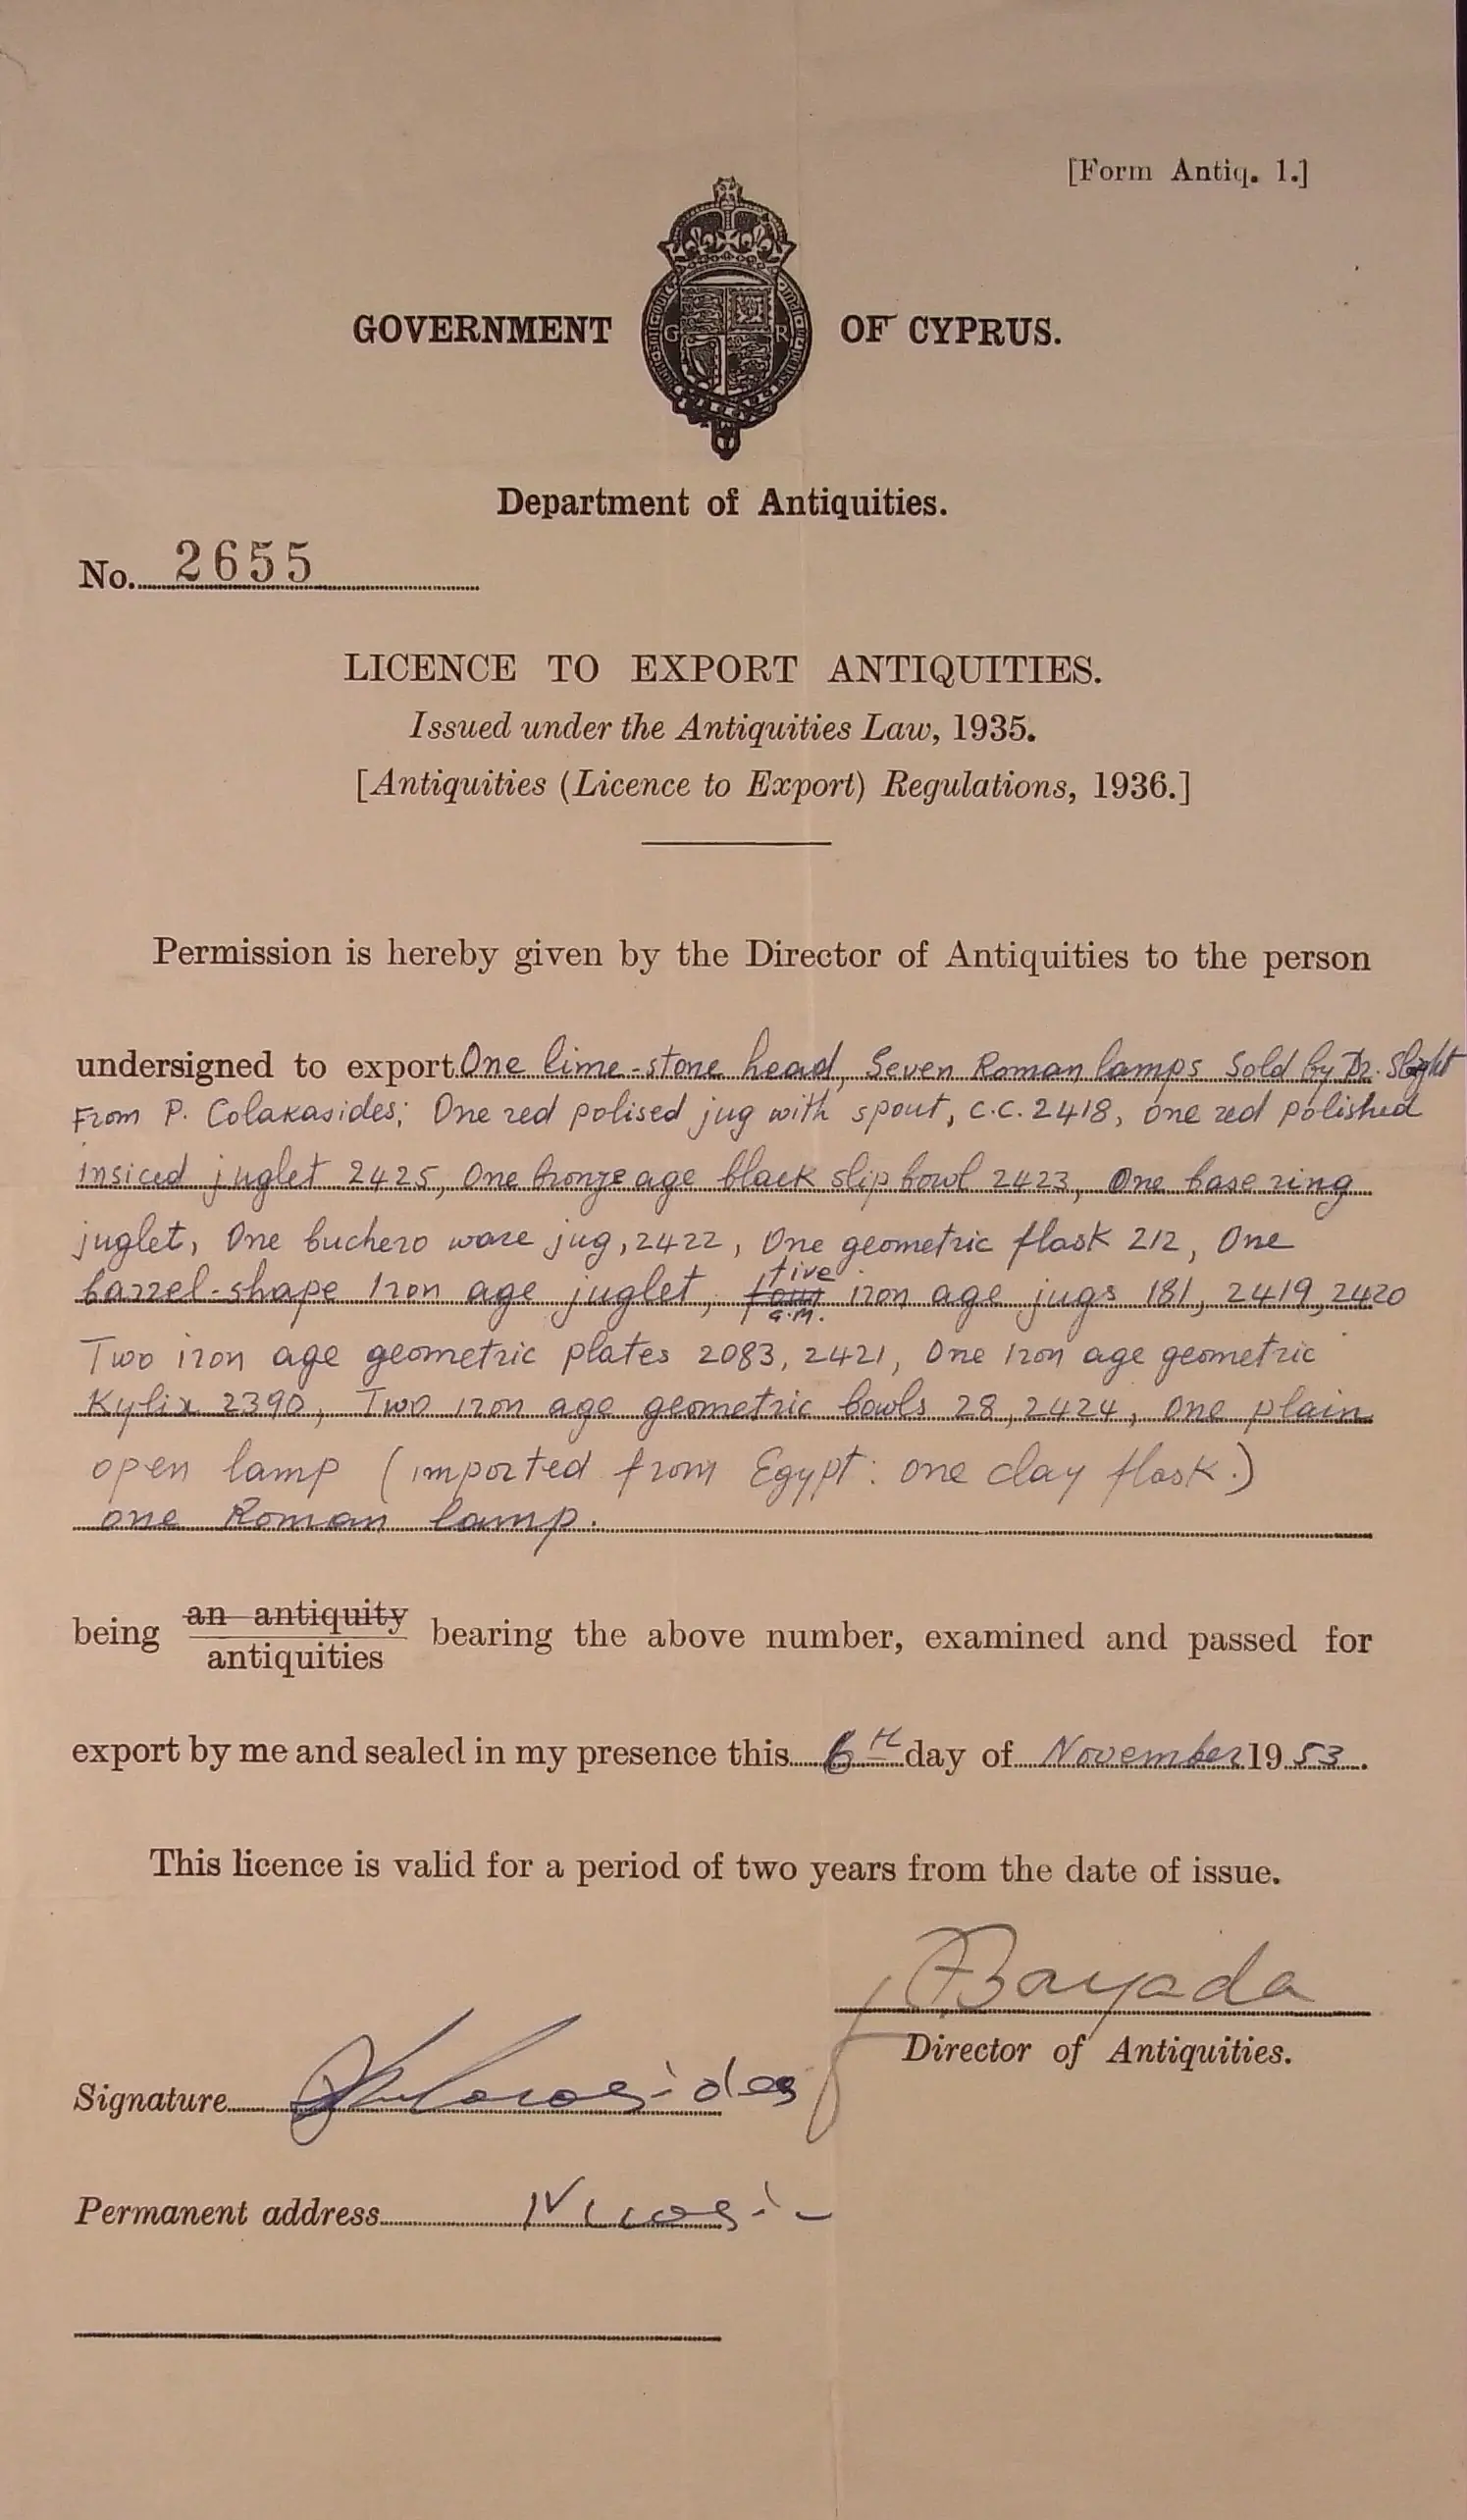 [Form Antiq. 1.]
GOVERNMENT G R OF CYPRUS.
Department of Antiquities.
No. 2655
LICENCE TO EXPORT ANTIQUITIES.
Issued under the Antiquities Law, 1935.
[Antiquities (Licence to Export) Regulations, 1936.]
Permission is hereby given by the Director of Antiquities to the person
undersigned to export One lime-stone head, Seven Roman lamps Sold by Dr. Slight
From P. Colakasides; One red polised jug with spout, C.C. 2418, one red polished
insiced juglet 2425, One bronze age black slip bowl 2423, One base ring
juglet, One buchero ware jug, 2422, One geometric flask 212, One
barrel-shape Iron age juglet, four five G.M. iron age jugs 181, 2419, 2420
Two iron age geometric plates 2083, 2421, One Iron age geometric
Kylix 2390, Two iron age geometric bowls 28, 2424, One plain
open lamp (imported from Egypt: one clay flask.)
one Roman lamp.
being an antiquity
antiquities bearing the above number, examined and passed for
export by me and sealed in my presence this 6th day of November 1953.
This licence is valid for a period of two years from the date of issue.
Bayada
Director of Antiquities.
Signature
Permanent address